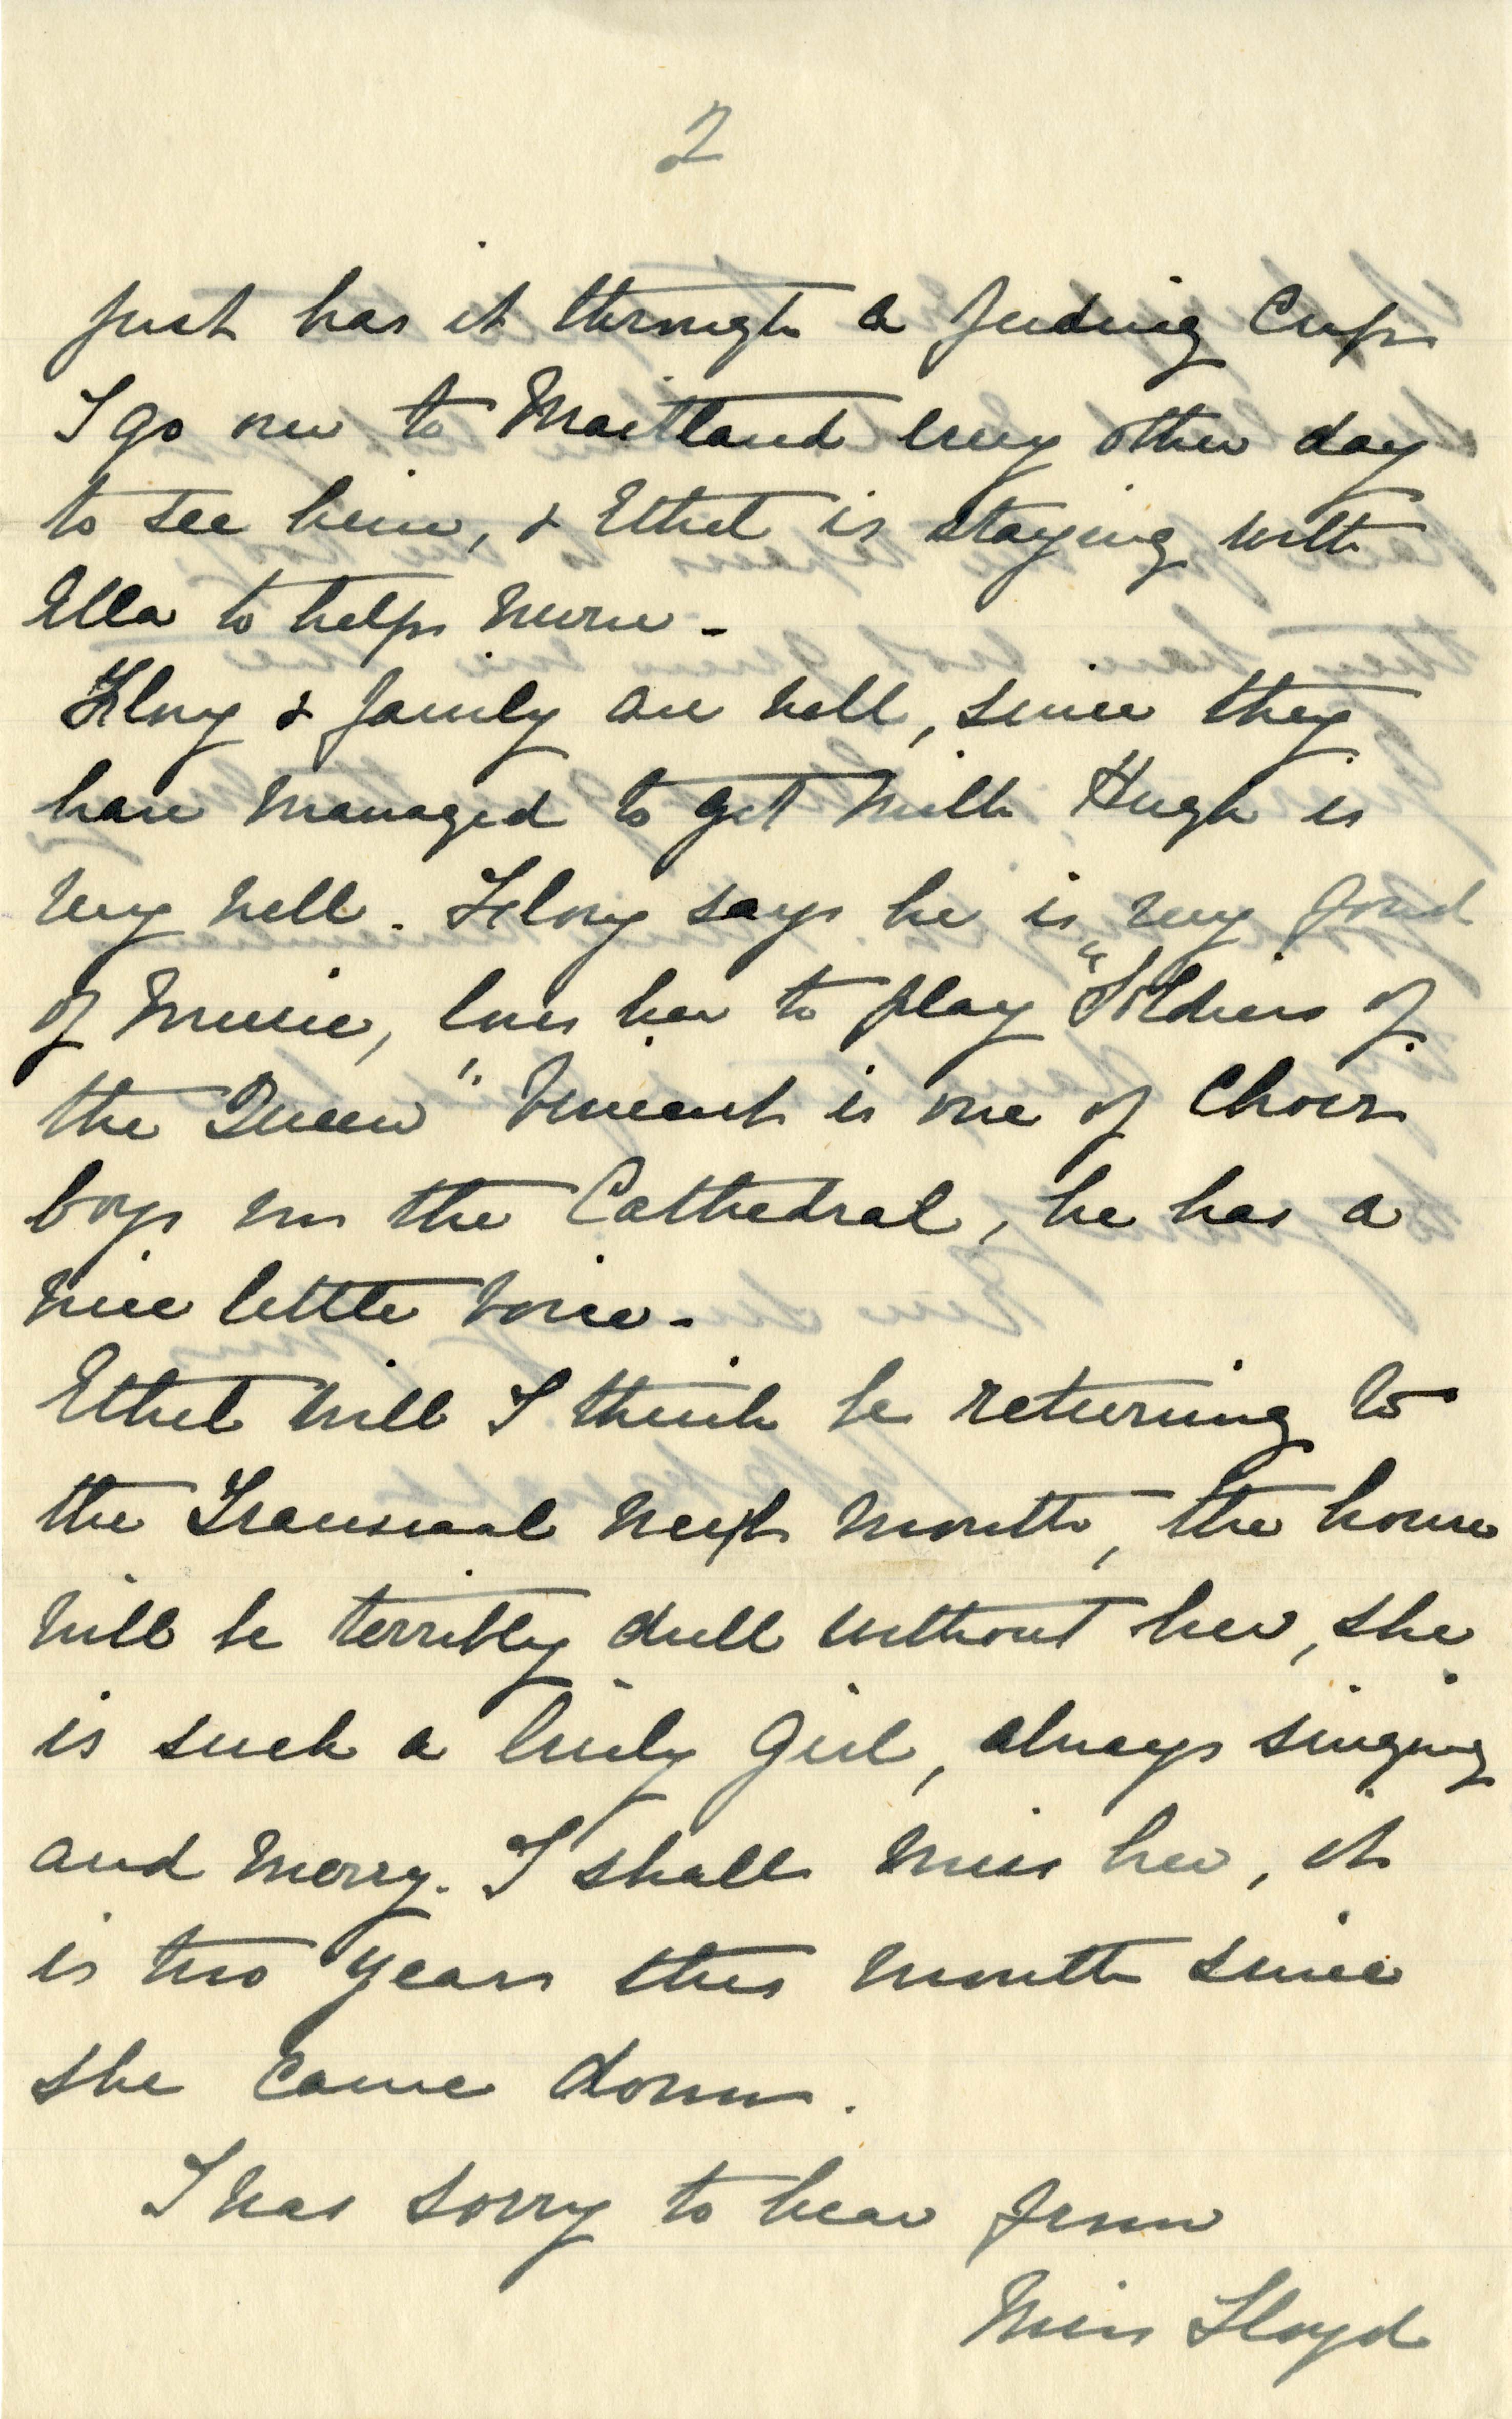 2
just has it through a feeding Cup
I go over to Maitland every other day
to see him, & Ethel is staying with
Ella to help nurse -
& family are well, since they
have managed to get milk Hugh is
very well. says he is very fond
of music, loves her to play "Soldiers of
the Queen" Vincent is one of Choir
boys in the Cathedral, he has a
nice little voice -
Ethel will I think be returning to
the Transvaal next month, the house
will be terribly dull without her, she
is such a lively girl, always singing
and merry. I shall miss her, it
is two years this month since
she came down.
I was sorry to hear from
Miss Lloyd